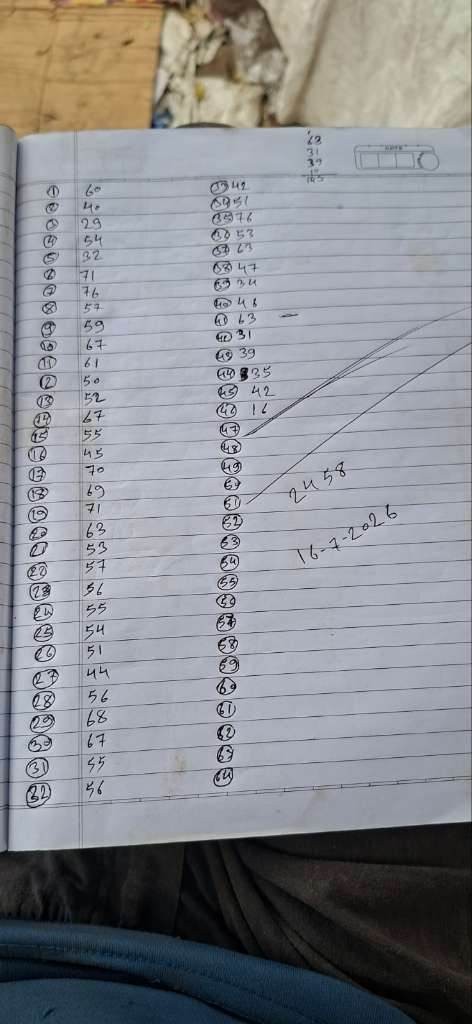 68
31
39
DATE
① 60
② 40
③ 29
④ 54
⑤ 32
⑥ 71
⑦ 76
⑧ 57
⑨ 59
⑩ 67
⑪ 61
⑫ 50
⑬ 52
⑭ 67
⑮ 55
⑯ 45
⑰ 70
⑱ 69
⑲ 71
⑳ 63
㉑ 53
㉒ 57
㉓ 56
㉔ 55
㉕ 54
㉖ 51
㉗ 44
㉘ 56
㉙ 68
㉚ 67
㉛ 55
㉜ 56
㉝ 42
㉞ 51
㉟ 76
㊱ 53
㊲ 63
㊳ 47
㊴ 34
㊵ 48
㊶ 63 –
㊷ 31
㊸ 39
㊹ 35
㊺ 42
㊻ 16
㊼
㊽
㊾
㊿
51
52
53
54
55
56
57
58
59
60
61
62
63
64
2458
16-7-2026